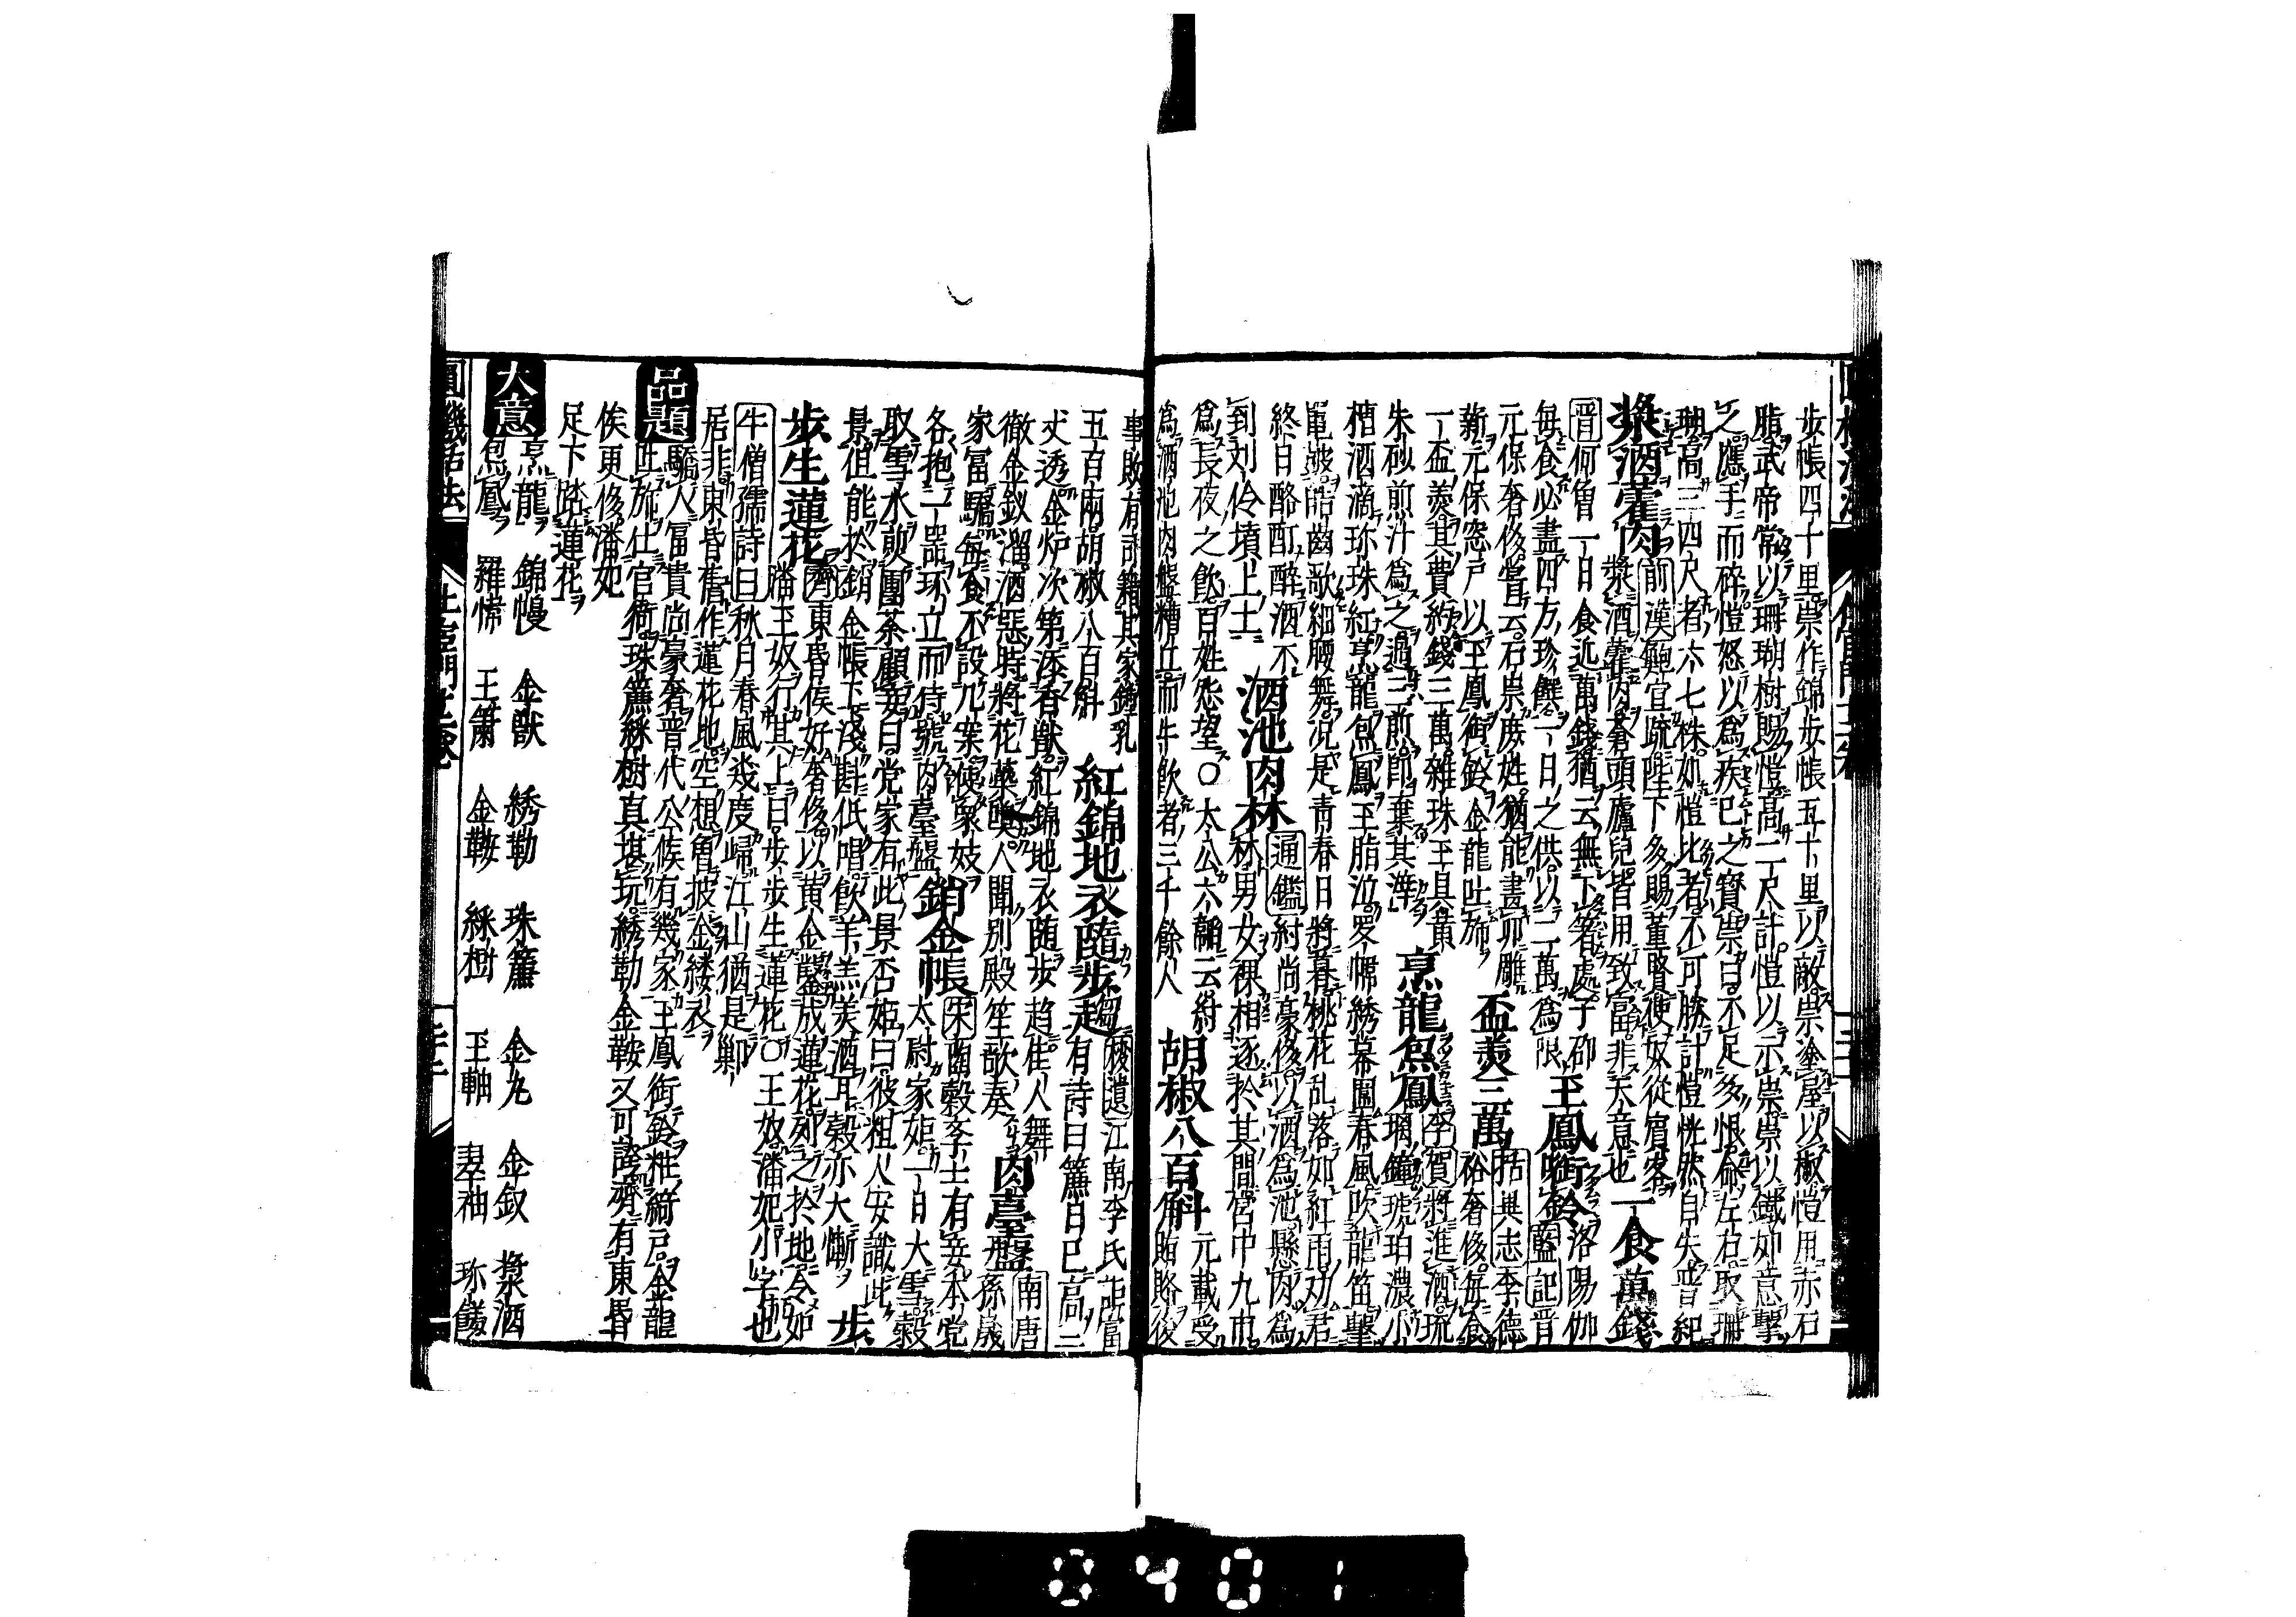 步帳四十里崇作錦步帳五十里以敵崇塗屋以椒愷用赤石
脂武帝常以珊瑚樹賜愷高二尺計愷以示崇崇以鐵如意擊
之應手而碎愷怒以爲疾巳之寳崇曰不足多恨命左右取珊
瑚高三四尺者六七株如愷比者不可勝計愷恍然自失晋紀
漿酒藿肉 前漢鮑宣疏陛下多賜董賢使奴從賓客
漿酒藿肉蒼頭廬兒皆用致富非天意也 一食萬錢
晋何曾一日食近萬錢猶云無下箸處子劭
毎食必盡四方珍饌一日之供以二萬爲限 玉鳳啣鈴 洛陽伽
藍記晋
元保奢侈嘗云石崇庶姓猶能畫卯雕
薪元保窓戸以玉鳳啣鈴金龍吐斾 盃羮三萬 李德
裕奢侈每食
一盃羮其費約錢三萬雜珠玉具黄
朱砂煎汁爲之過三煎卽棄其滓 烹龍炰鳳 李賀將進酒琉
璃鐘琥珀濃小
槽酒滴珎珠紅烹龍炰鳳玉脂泣罗幃綉幕圍春風吹龍笛擊
鼉皷皓齒歌細腰舞况是青春日將暮桃花乱落如紅雨劝君
終日酩酊醉酒不
到刘伶墳上土 酒池肉林 通鑑紂尚豪侈以酒爲池懸肉爲
林男女裸相逐於其間宮中九市
爲長夜之飲百姓怨望〇太公六韜云紂
爲酒池肉盤糟丘而牛飲者三千餘人 胡椒八百斛 元載受
賄賂後
事敗有司籍其家鍾乳
五百兩胡椒八百斛 紅錦地衣隨步趍 江南李氏
有詩曰簾日巳高三
丈透金炉次第添香獸紅錦地衣随步趍佳人舞
徹金釵溜酒惡時將花蘂嗅人聞別殿笙歌奏 肉臺盤 南唐
孫晟
家富驕每食不設几案使衆妓
各抱一器环立而侍號肉臺盤 銷金帳 宋陶穀李士有妾本党
太尉家姬一日大雪榖
取雪水煎團茶顧妾曰党家有此景否姬曰彼粗人安識此
景但能於銷金帳下淺斟低唱飲羊羔美酒耳榖亦大慚 步
步生蓮花 齊東昏侯好奢侈以黄金鑿成蓮花列之於地令
潘玉奴行其上曰步步生蓮花〇玉奴潘妃小字也
牛僧孺詩曰秋月春風幾度歸江山猶是
居非東昏舊作蓮花地空想曾披金縷衣
品題 驕人冨貴尚豪奢晋代公侯有幾家玉鳳銜鈴粧綺戸金龍
吐旆仕官衙珠簾綵樹真堪玩綉勒金鞍又可誇有東昬
侯更侈潘妃
足下踏蓮花
大意 烹龍 錦幔 金獸 綉勒 珠簾 金丸 金釵 漿酒
炰鳳 羅幃 玉簫 金鞍 綵樹 玉軸 翠袖 珎饈
圓機活法
0401